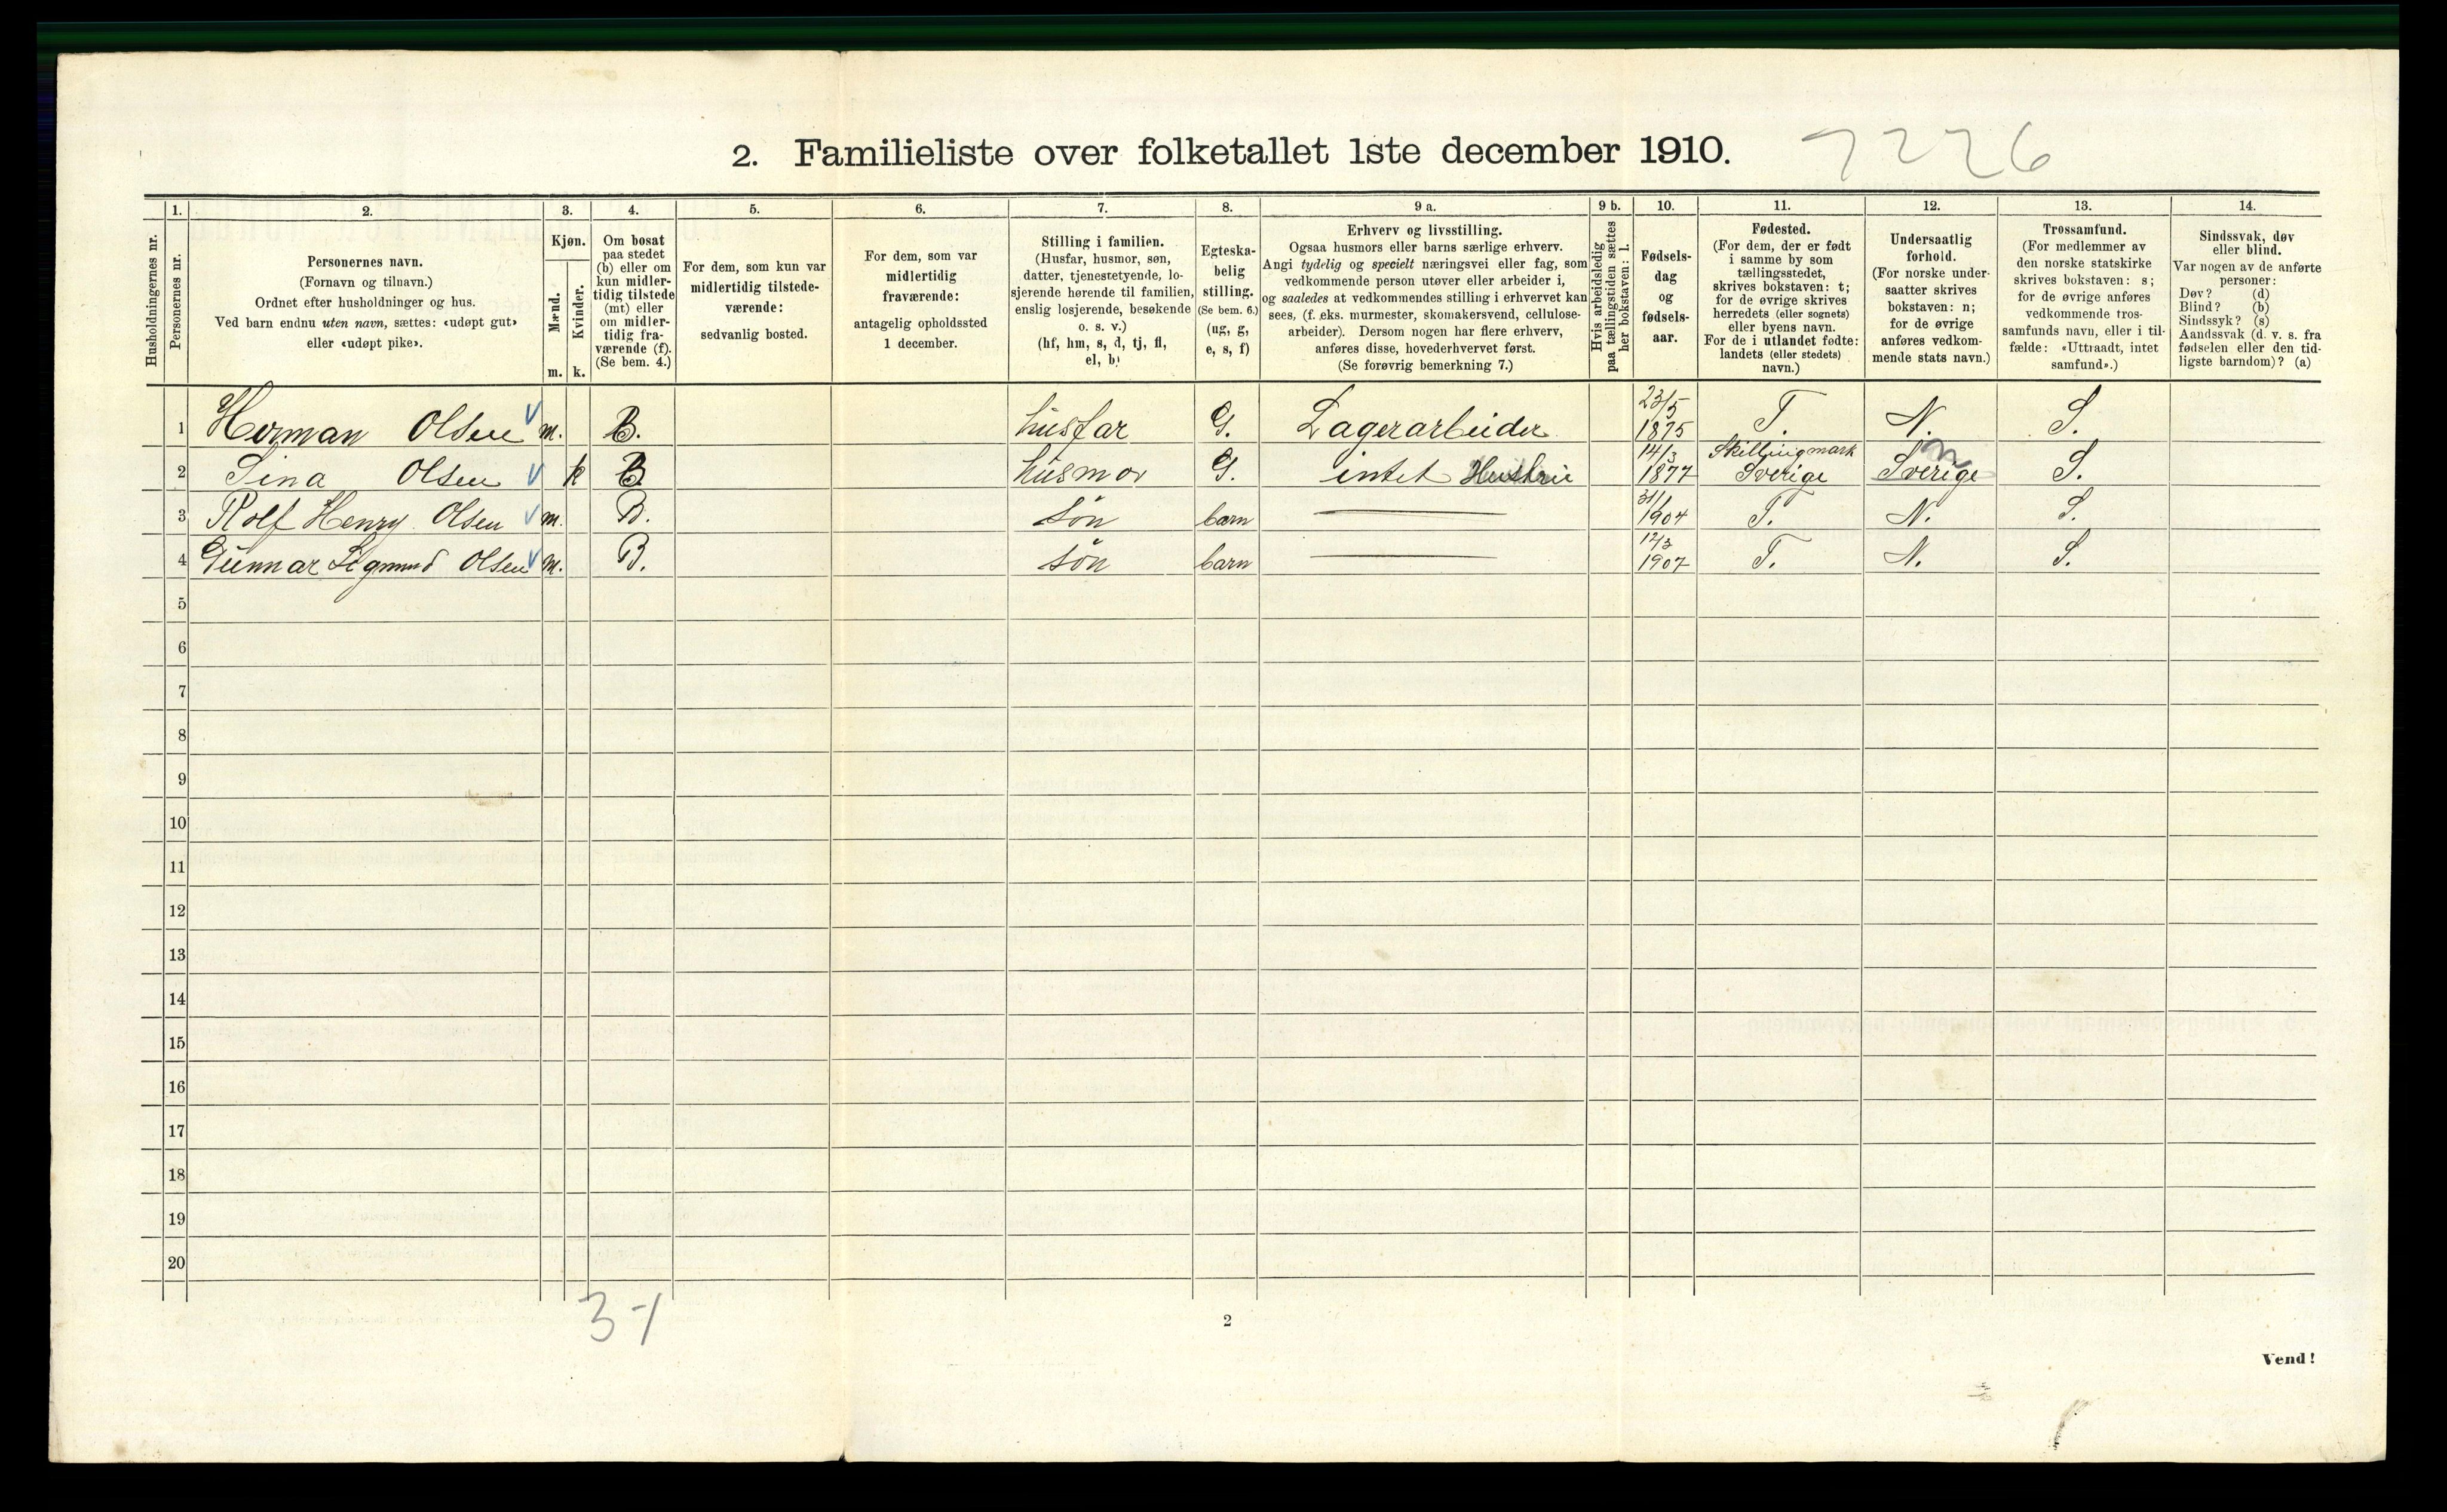 2. Familieliste over folketallet 1ste december 1910. 7226
1. 2. 3. 4. 5. 6. 7. 8. 9 a. 9 b. 10. 11. 12. 13. 14.
Husholdningernes nr.
Personernes nr.
Personernes navn.
(Fornavn og tilnavn.)
Ordnet efter husholdninger og hus.
Ved barn endnu uten navn, sættes: «udøpt gut»
eller «udøpt pike».
Kjøn.
Mænd.
m.
Kvinder.
k.
Om bosat
paa stedet
(b) eller om
kun midler-
tidig tilstede
(mt) eller
om midler-
tidig fra-
værende (f).
(Se bem. 4.)
For dem, som kun var
midlertidig tilstede-
værende:
sedvanlig bosted.
For dem, som var
midlertidig
fraværende:
antagelig opholdssted
1 december.
Stilling i familien.
(Husfar, husmor, søn,
datter, tjenestetyende, lo-
sjerende hørende til familien,
enslig losjerende, besøkende
o. s. v.)
(hf, hm, s, d, tj, fl,
el, b)
Egteska-
belig
stilling.
(Se bem. 6.)
(ug, g,
e, s, f)
Erhverv og livsstilling.
Ogsaa husmors eller barns særlige erhverv.
Angi tydelig og specielt næringsvei eller fag, som
vedkommende person utøver eller arbeider i,
og saaledes at vedkommendes stilling i erhvervet kan
sees, (f. eks. murmester, skomakersvend, cellulose-
arbeider). Dersom nogen har flere erhverv,
anføres disse, hovederhvervet først.
(Se forøvrig bemerkning 7.)
Hvis arbeidsledig
paa tællingstiden sættes
her bokstaven: l.
Fødsels-
dag
og
fødsels-
aar.
Fødested.
(For dem, der er født
i samme by som
tællingsstedet,
skrives bokstaven: t;
for de øvrige skrives
herredets (eller sognets)
eller byens navn.
For de i utlandet fødte:
landets (eller stedets)
navn.)
Undersaatlig
forhold.
(For norske under-
saatter skrives
bokstaven: n;
for de øvrige
anføres vedkom-
mende stats navn.)
Trossamfund.
(For medlemmer av
den norske statskirke
skrives bokstaven: s;
for de øvrige anføres
vedkommende tros-
samfunds navn, eller i til-
fælde: «Uttraadt, intet
samfund».)
Sindssvak, døv
eller blind.
Var nogen av de anførte
personer:
Døv? (d)
Blind? (b)
Sindssyk? (s)
Aandssvak (d. v. s. fra
fødselen eller den tid-
ligste barndom)? (a)
1 Herman Olsen m. B. husfar G. Lagerarbeider 23/5 1875 T. N. S.
2 Sina Olsen k B husmor G. intet Hustru 14/3 1877 Skillingmark Sverige Sverige n S.
3 Rolf Henry Olsen m. B. søn barn 31/1 1904 T. N. S.
4 Gunnar Sigmund Olsen m. B. søn barn 12/3 1907 T. N. S.
5
6
7
8
9
10
11
12
13
14
15
16
17
18
19
20
3-1
2
Vend!